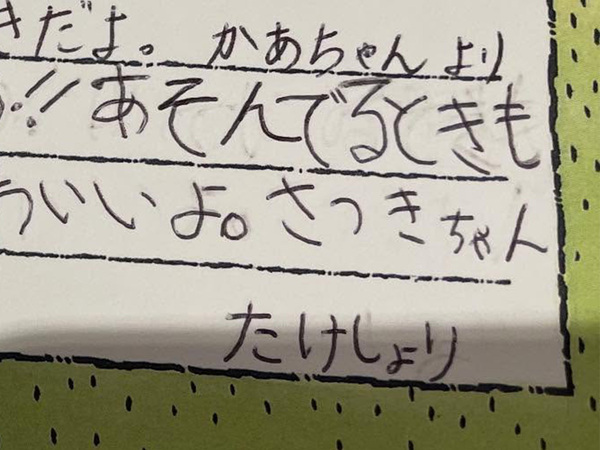 きだよ。 かあちゃんより
!! あそんでるときも
ういいよ。さつきちゃん
たけしより